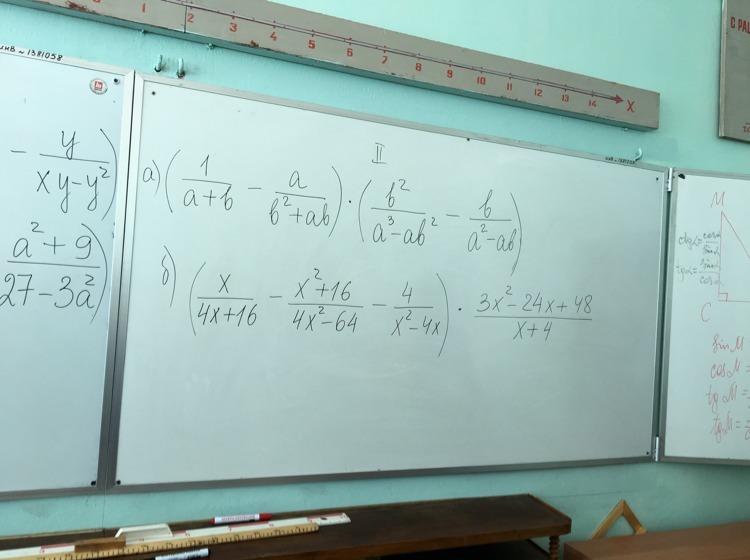 1 2 3 4 5 6 7 8 9 10 11 12 13 14 X
инв ~ 1381058
II
− y/(xy−y²))
(a²+9)/(27−3a²))
а) (1/(a+b) − a/(b²+ab)) · (b²/(a³−ab²) − b/(a²−ab))
б) (x/(4x+16) − (x²+16)/(4x²−64) − 4/(x²−4x)) · (3x²−24x+48)/(x+4)
M
C
sin M
cos M =
tg M =